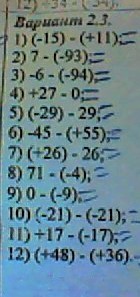 Вариант 2.3.
1) (-15) - (+11);
2) 7 - (-93);
3) -6 - (-94);
4) +27 - 0;
5) (-29) - 29;
6) -45 - (+55);
7) (+26) - 26;
8) 71 - (-4);
9) 0 - (-9);
10) (-21) - (-21);
11) +17 - (-17);
12) (+48) - (+36).